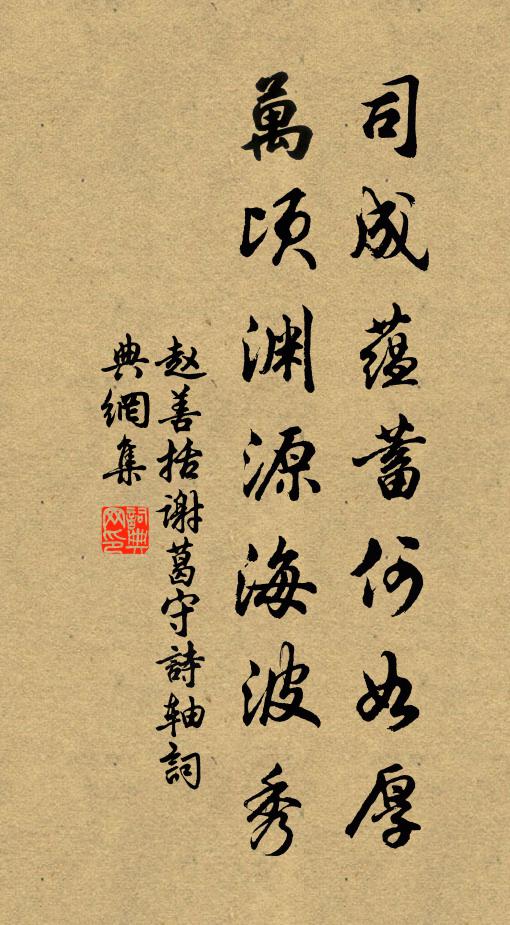 司成蕴蓄何如厚
萬頃渊源海波秀
赵善括谢葛守詩轴詞
典網集
詞典網印